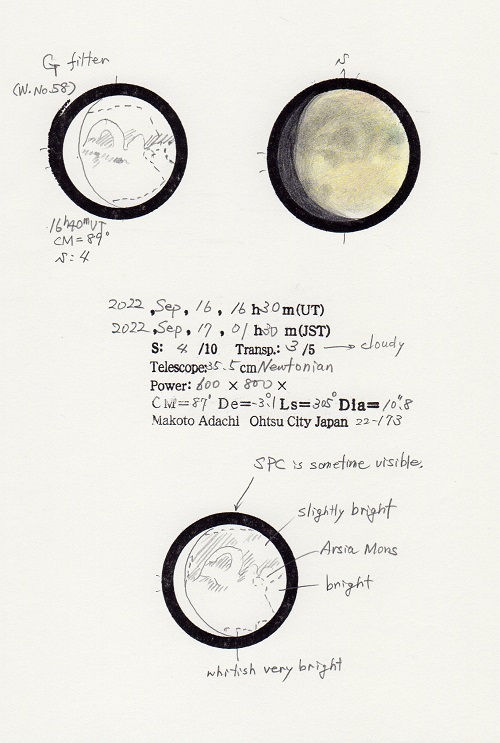 G filter
(W.No.58)
S
16h40mUT
CM=89°
S:4
2022, Sep, 16, 16 h30m(UT)
2022, Sep, 17, 01 h30 m(JST)
S: 4 /10 Transp.: 3 /5 → cloudy
Telescope:35.5cm Newtonian
Power: 600 × 800 ×
CM=87° De=-3.1° Ls=305° Dia=10".8
Makoto Adachi Ohtsu City Japan 22-173
SPC is sometime visible.
slightly bright
Arsia Mons
bright
whitish very bright